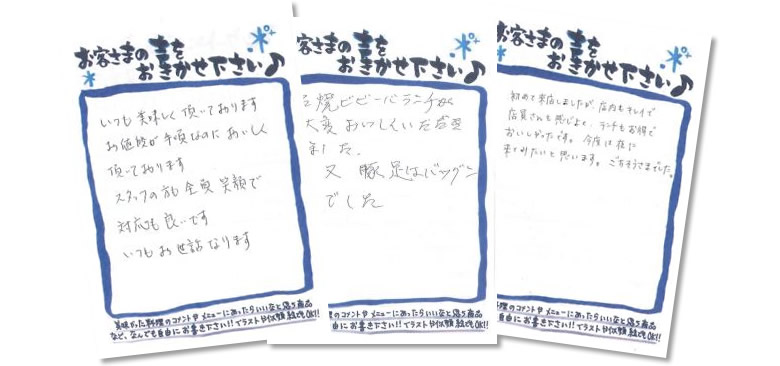 お客さまの声を
おきかせ下さい♪
いつも美味しく頂いております
お値段が手頃なのにおいしく
頂いております
スタッフの方も全員笑顔で
対応も良いです
いつもお世話なります
美味かった料理のコメントやメニューにあったらいいなと思う商品
など、なんでも自由にお書き下さい!!でラストや似顔絵でもOK!!
お客さまの声を
おきかせ下さい♪
焼ビビーバランチが
大変おいしくいただき
ました。
又 豚足はバツグン
でした
理のコメントやメニューにあったらいいなと思う商品
自由にお書き下さい!!でラストや似顔絵でもOK!!
お客さまの声を
おきかせ下さい♪
初めて来店しましたが、店内もキレイで
店員さんも感じよく、ランチもお得で
おいしかったです。今度は夜に
来てみたいと思います。ごちそうさまでした。
理のコメントやメニューにあったらいいなと思う商品
自由にお書き下さい!!でラストや似顔絵でもOK!!